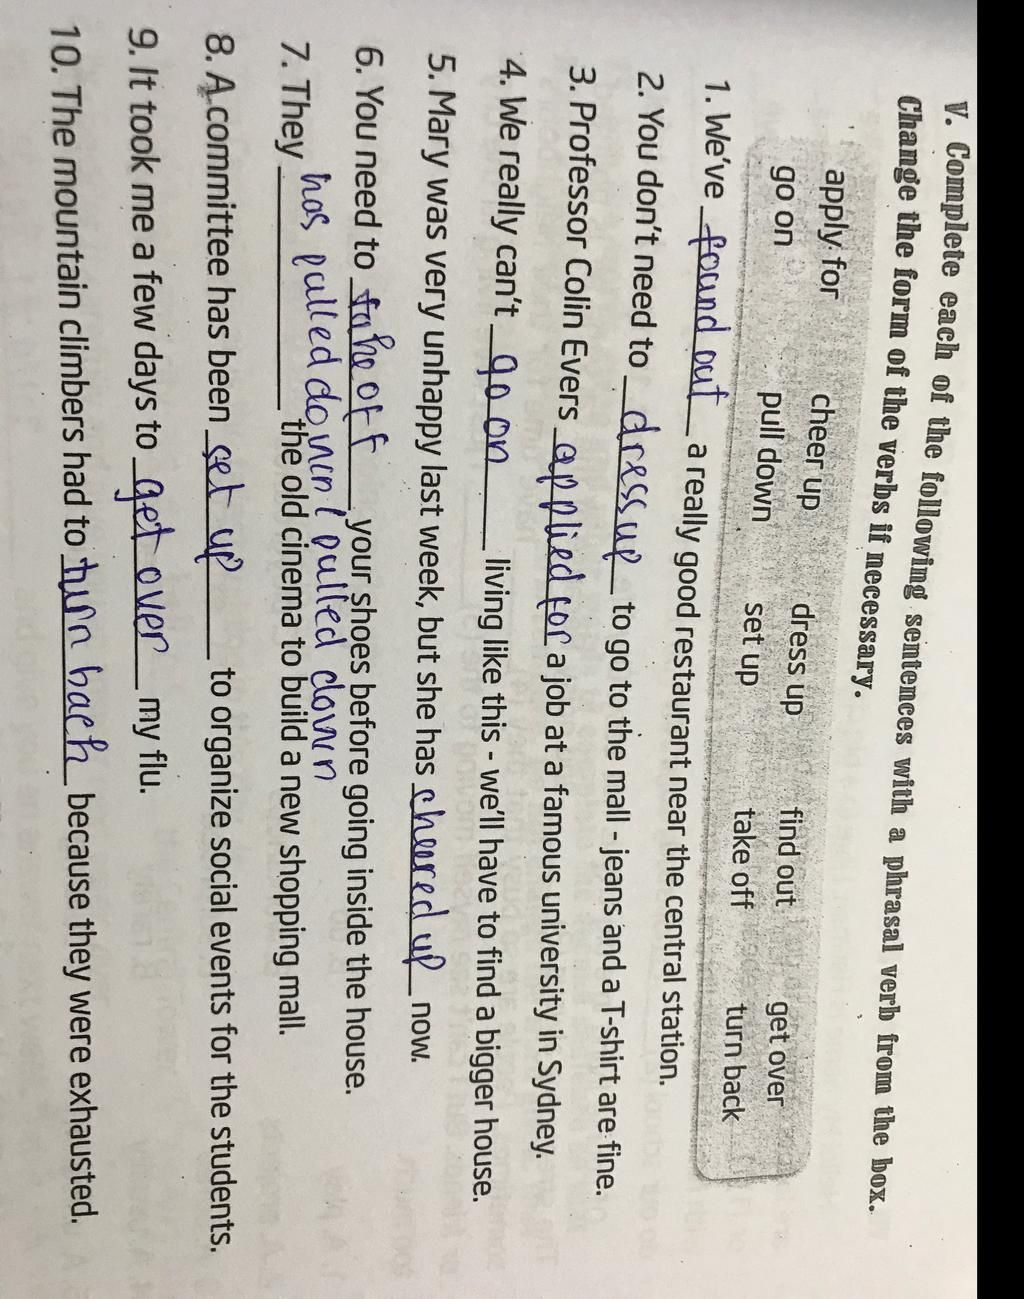 V. Complete each of the following sentences with a phrasal verb from the box.
Change the form of the verbs if necessary.
apply for cheer up dress up find out get over
go on pull down set up take off turn back
1. We've found out a really good restaurant near the central station.
2. You don't need to dress up to go to the mall - jeans and a T-shirt are fine.
3. Professor Colin Evers applied for a job at a famous university in Sydney.
4. We really can't go on living like this - we'll have to find a bigger house.
5. Mary was very unhappy last week, but she has cheered up now.
6. You need to take off your shoes before going inside the house.
has pulled down / pulled down
7. They ________ the old cinema to build a new shopping mall.
8. A committee has been set up to organize social events for the students.
9. It took me a few days to get over my flu.
10. The mountain climbers had to turn back because they were exhausted.